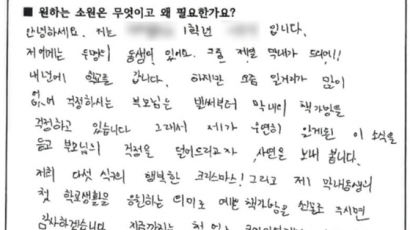 ■ 원하는 소원은 무엇이고 왜 필요한가요?
안녕하세요. 저는 1학년 입니다.
저에게는 두명의 동생이 있어요. 그중 제일 막내가 드디어!!
내년에 학교를 갑니다. 하지만 요즘 일거리가 많이
없어 걱정하시는 부모님은 벌써부터 막내의 책가방을
걱정하고 있습니다. 그래서 제가 우연히 알게된 이 소식을
듣고 부모님의 걱정을 덜어드리고자 사연을 보내 봅니다.
저희 다섯 식구의 행복한 크리스마스! 그리고 제 막내동생의
첫 학교생활을 응원하는 의미로 예쁜 책가방을 선물로 주시면
감사하겠습니다.